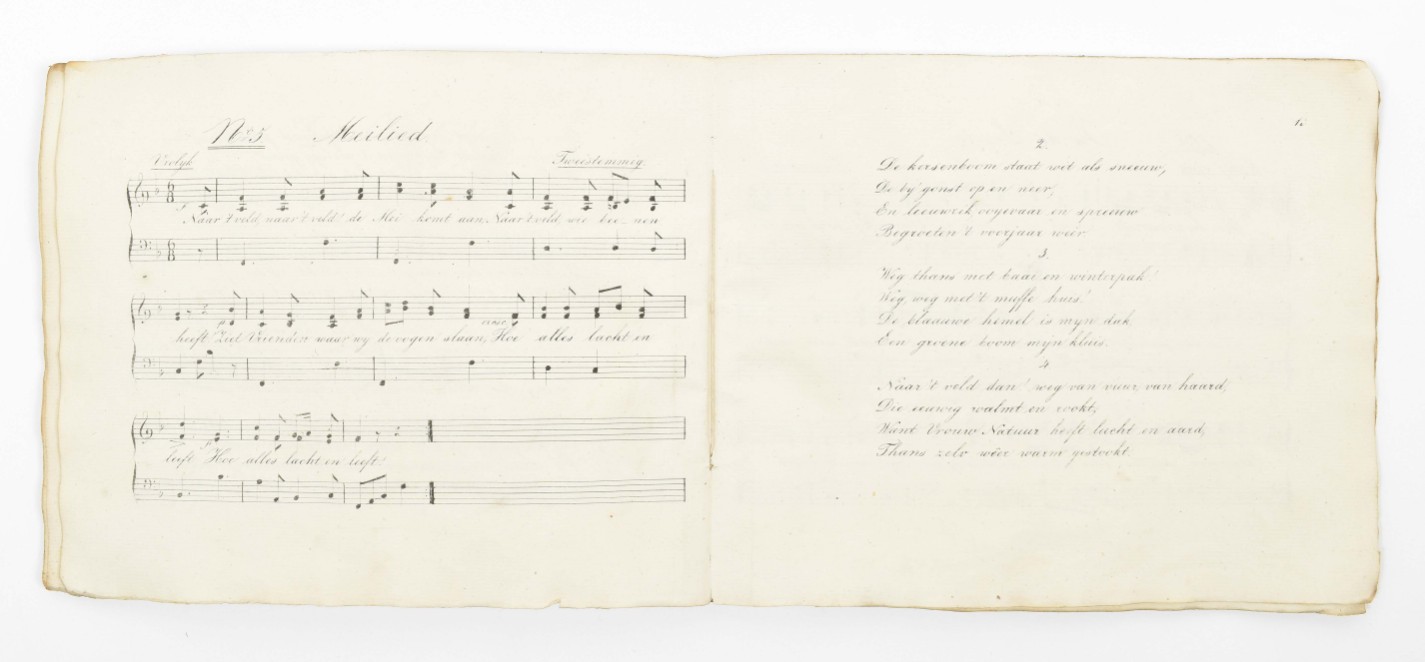 No 5 Meilied
Vrolyk Tweestemmig
Naar 't veld, naar 't veld! de Mei komt aan, Naar 't veld, wie bee-nen
heeft! Ziet Vrienden waar wy de oogen slaan, Hoe alles lacht en
leeft! Hoe alles lacht en leeft!
2.
De kersenboom staat wit als sneeuw,
De by' gonst op en neer,
En leeuwrik, ooyevaar en spreeuw
Begroeten 't voorjaar wéér.
3.
Weg thans met baai en winterpak!
Weg, weg met 't muffe huis!
De blaauwe hemel is myn dak,
Een groene boom myn kluis.
4
Naar 't veld dan! weg van vuur, van haard,
Die eeuwig walmt en rookt,
Want Vrouw Natuur heeft lucht en aard,
Thans zelv wéér warm gestookt.